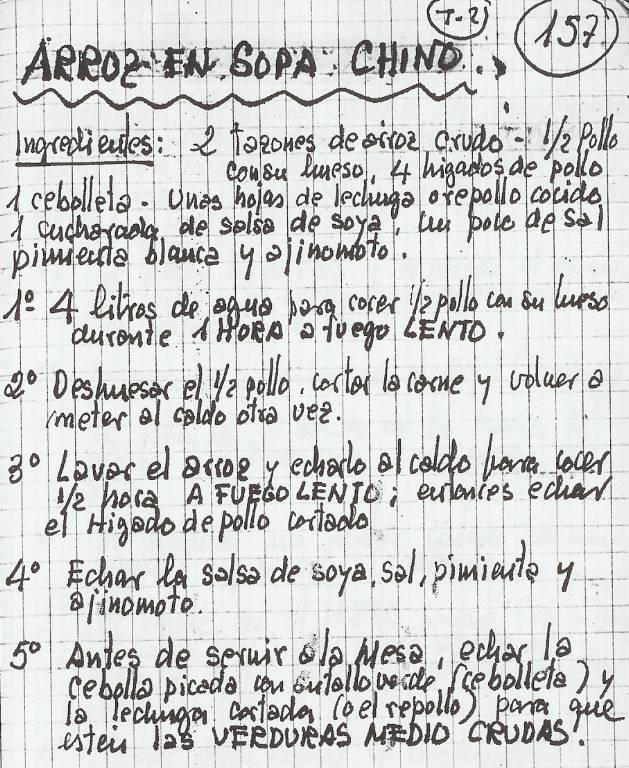 T-2)
157
ARROZ EN SOPA CHINO.
Ingredientes: 2 tazones de arroz crudo - 1/2 Pollo
con su hueso, 4 higados de pollo
1 cebolleta - Unas hojas de lechuga o repollo cocido,
1 cucharada de salsa de soya, un poco de sal
pimienta blanca y ajinomoto.
1º 4 litros de agua para cocer 1/2 pollo con su hueso
durante 1 HORA a fuego LENTO.
2º Deshuesar el 1/2 pollo, cortar la carne y volver a
meter al caldo otra vez.
3º Lavar el arroz y echarlo al caldo para cocer
1/2 hora A FUEGO LENTO; entonces echar
el Higado de pollo cortado
4º Echar la salsa de soya, sal, pimienta y
ajinomoto.
5º Antes de servir a la Mesa, echar la
cebolla picada con su tallo verde (cebolleta) y
la lechuga cortada (o el repollo) para que
esten las VERDURAS MEDIO CRUDAS.